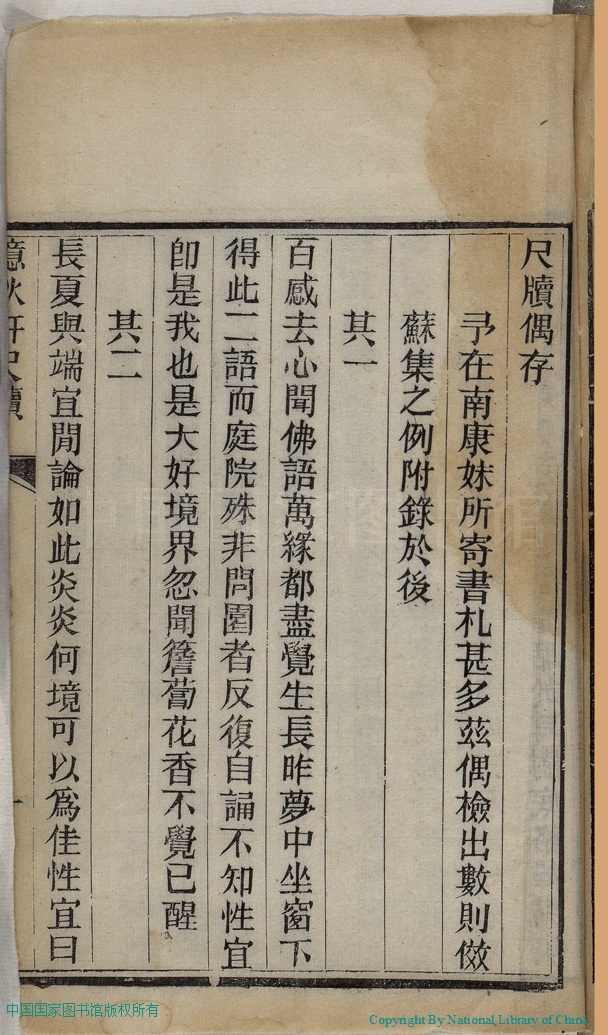 尺牘偶存
予在南康妹所寄書札甚多茲偶檢出數則倣
蘇集之例附錄於後
其一
百感去心聞佛語萬緣都盡覺生長昨夢中坐窗下
得此二語而庭院殊非問園者反復自誦不知性宜
卽是我也是大好境界忽聞簷蔔花香不覺已醒
其二
長夏與端宜閒論如此炎炎何境可以爲佳性宜曰
憶秋軒尺牘
一
中国国家图书馆版权所有
Copyright By National Library of China